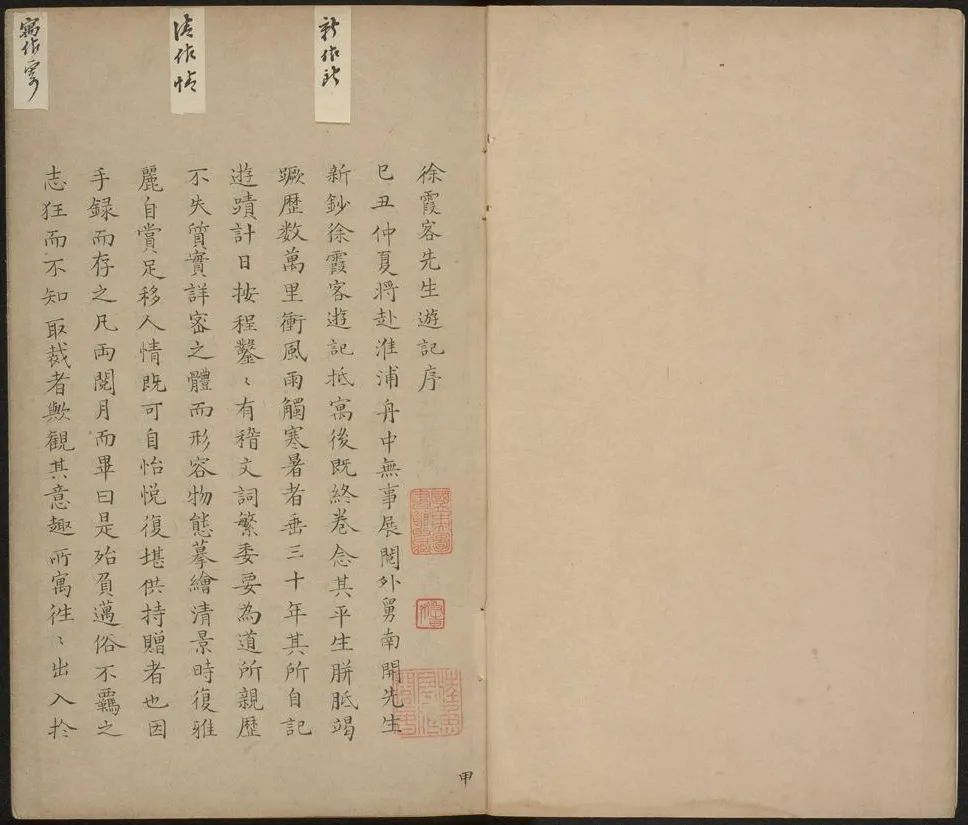 徐霞客先生遊記序
已丑仲夏將赴淮浦舟中無事展閱外舅南開先生
新鈔徐霞客遊記抵寓後既終卷念其平生胼胝竭
蹶歷数萬里衝風雨觸寒暑者垂三十年其所自記
遊蹟計日按程鑿〻有稽文詞繁委要為道所親歷
不失質實詳密之體而形容物態摹繪清景時復雅
麗自賞足移人情既可自怡悅復堪供持贈者也因
手録而存之凡兩閱月而畢曰是殆負邁俗不羈之
志狂而不知取裁者歟觀其意趣所寓徃〻出入於
新作所
清作情
寓作寄
甲